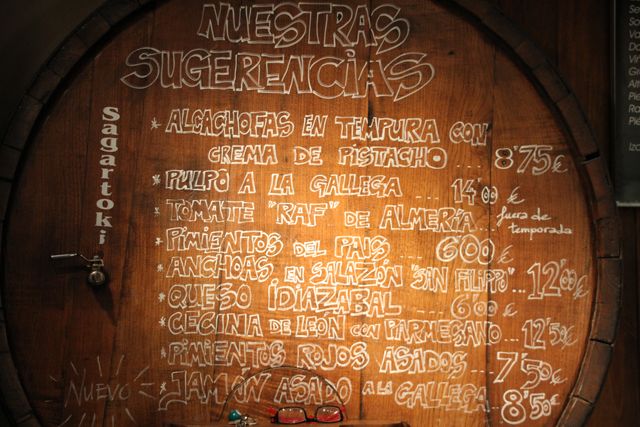 NUESTRAS
SUGERENCIAS
Sagartoki
* ALCACHOFAS EN TEMPURA CON
CREMA DE PISTACHO .... 8'75€
* PULPO A LA GALLEGA ... 14'00 €
* TOMATE "RAF" DE ALMERÍA... fuera de
temporada
* PIMIENTOS DEL PAIS .... 6'00 €
* ANCHOAS EN SALAZÓN "SAN FILIPPO"... 12'00€
* QUESO IDIAZABAL ........ 6'00 €
* CECINA DE LEÓN CON PARMESANO ... 12'50€
* PIMIENTOS ROJOS ASADOS.... 7'50€
NUEVO * JAMÓN ASADO A LA GALLEGA... 8'50€